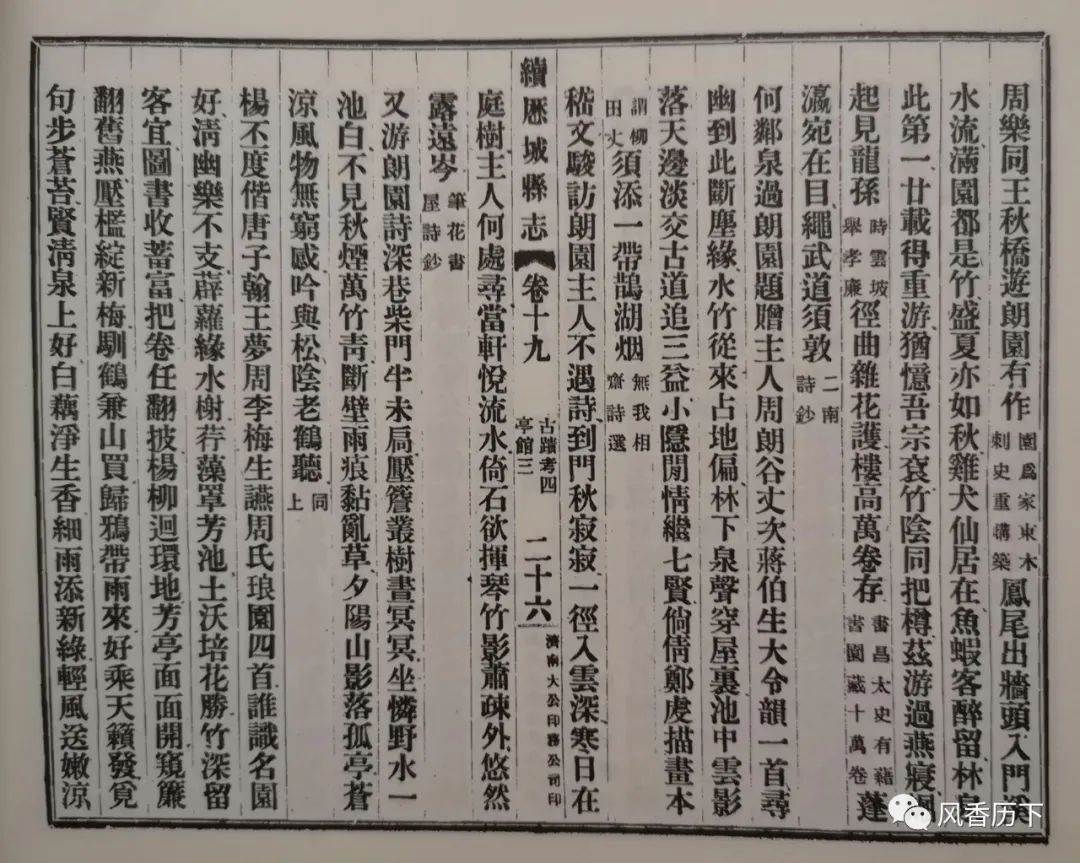 周樂同王秋橋遊朗園有作園爲家東木刺史重構築鳳尾出牆頭入門溪
水流滿園都是竹盛夏亦如秋雞犬仙居在魚蝦客醉留林泉
此第一廿載得重游猶憶吾宗袞竹陰同把樽茲游過燕寢
起見龍孫時雲坡舉孝廉徑曲雜花護樓高萬卷存書昌太史有藉書園藏十萬卷蓬
瀛宛在目繩武道須敦二南詩鈔
何鄰泉過朗園題贈主人周朗谷丈次蔣伯生大令韻一首尋
幽到此斷塵緣水竹從來占地偏林下泉聲穿屋裏池中雲影
落天邊淡交古道追三益小隱閒情繼七賢倘倩鄭虔描畫本
謂柳田丈須添一帶鵲湖烟無我相齋詩選
嵇文駿訪朗園主人不遇詩到門秋寂寂一徑入雲深寒日在
續歷城縣志 卷十九 古蹟考四亭館三 二十六 濟南大公印務公司印
庭樹主人何處尋當軒悅流水倚石欲揮琴竹影蕭疎外悠然
露遠岑筆花書屋詩鈔
又游朗園詩深巷柴門半未扃壓簷叢樹晝冥冥坐憐野水一
池白不見秋煙萬竹靑斷壁雨痕黏亂草夕陽山影落孤亭蒼
涼風物無窮感吟與松陰老鶴聽同上
楊丕度偕唐子翰王夢周李梅生讌周氏琅園四首誰識名園
好淸幽樂不支薜蘿緣水榭荇藻罩芳池土沃培花勝竹深留
客宜圖書收蓄富把卷任翻披楊柳迴環地芳亭面面開窺簾
翻舊燕壓檻綻新梅馴鶴兼山買歸鴉帶雨來好乘天籟發覓
句步蒼苔賢淸泉上好白藕淨生香細雨添新綠輕風送嫩涼
风香历下